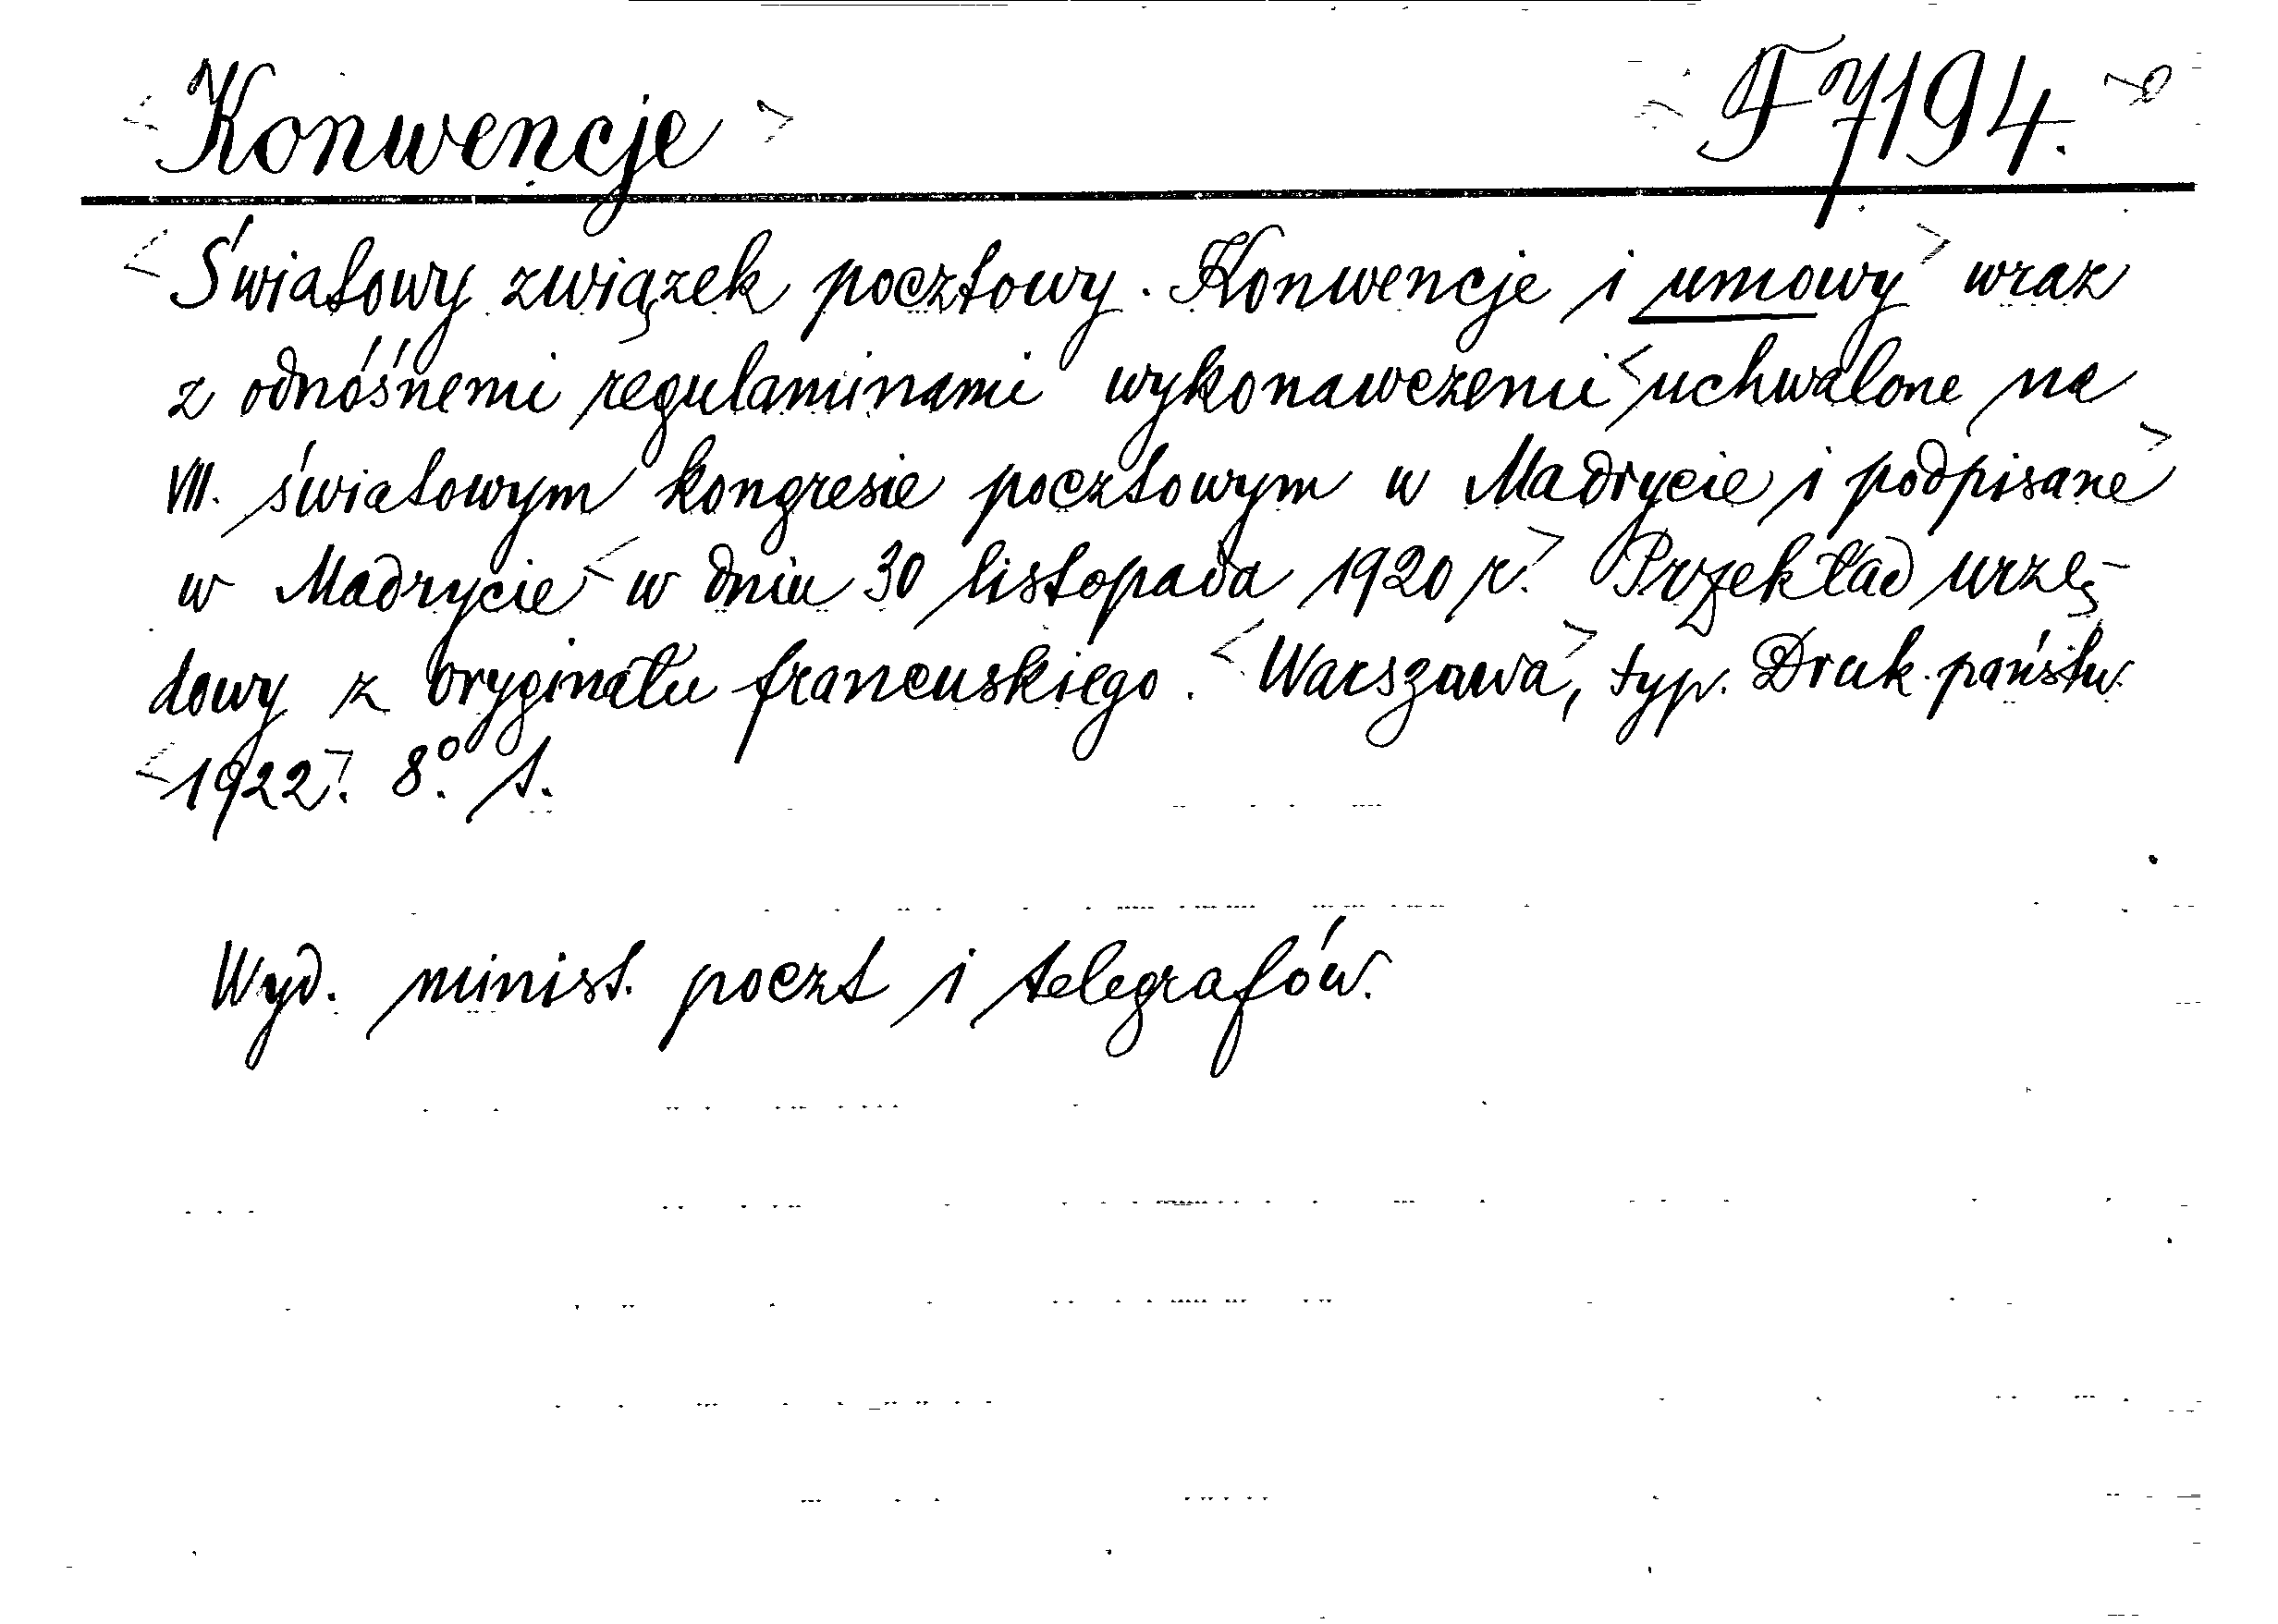 <Konwencje> <F 7194.>
<Światowy związek pocztowy. Konwencje i umowy> wraz
z odnóśnemi regulaminami wykonawczemi <uchwalone na
VII. światowym kongresie pocztowym w Madrycie i podpisane>
w Madrycie <w dniu 30 listopada 1920 r.> Przekład urzę-
dowy z oryginału francuskiego. <Warszawa>, typ. Druk. państw.
<1922>. 8º. s.
Wyd. minist. poczt i telegrafów.